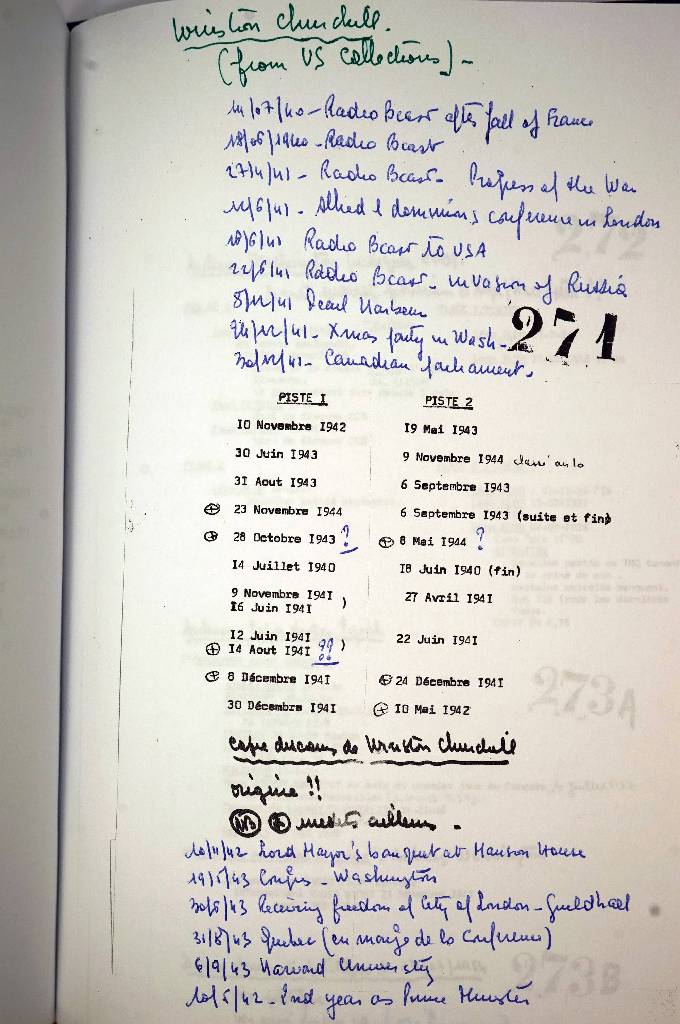 Winston Churchill.
(from US Collections) -
14/07/40 - Radio Bcast after fall of France
18/06/1940 - Radio Bcast
27/4/41 - Radio Bcast - Progress of the War
12/6/41 - Allied & dominions conference in London
16/6/41 Radio Bcast to USA
22/6/41 Radio Bcast - invasion of Russia
8/12/41 Pearl Harbour
24/12/41 - Xmas party in Wash -
271
30/12/41 - Canadian parliament.
PISTE I PISTE 2
10 Novembre 1942 19 Mai 1943
30 Juin 1943 9 Novembre 1944
31 Aout 1943 6 Septembre 1943
⊕ 23 Novembre 1944 6 Septembre 1943 (suite et fin)
⊕ 28 Octobre 1943 ? ⊕ 8 Mai 1944 ?
14 Juillet 1940 18 Juin 1940 (fin)
9 Novembre 1941 27 Avril 1941
16 Juin 1941 )
12 Juin 1941 22 Juin 1941
⊕ 14 Aout 1941 ?? )
⊕ 8 Décembre 1941 ⊕ 24 Décembre 1941
30 Décembre 1941 ⊕ 10 Mai 1942
copie discours de Winston Churchill
origine !!
NB ⊕ inedits ailleurs .
10/11/42 Lord Mayor's banquet at Mansion House
19/5/43 Congres - Washington
30/6/43 Receiving freedom of City of London - Guildhall
31/8/43 Quebec (en marge de la Conference)
6/9/43 Harvard University
10/5/42 - 2nd year as Prime Minister
272
273A
273B